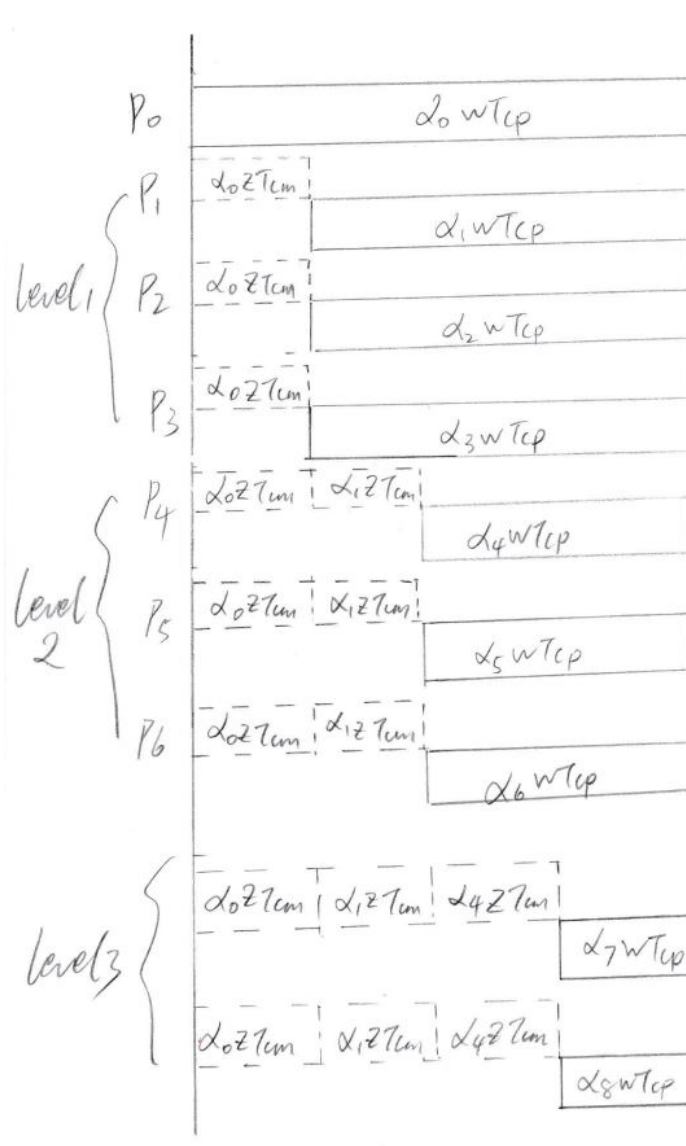 P₀ α₀wTcp
P₁ α₀zTcm
α₁wTcp
level₁ P₂ α₀zTcm
α₂wTcp
P₃ α₀zTcm
α₃wTcp
P₄ α₀zTcm α₁zTcm
α₄wTcp
level 2 P₅ α₀zTcm α₁zTcm
α₅wTcp
P₆ α₀zTcm α₁zTcm
α₆wTcp
level₃ α₀zTcm α₁zTcm α₄zTcm
α₇wTcp
α₀zTcm α₁zTcm α₄zTcm
α₈wTcp